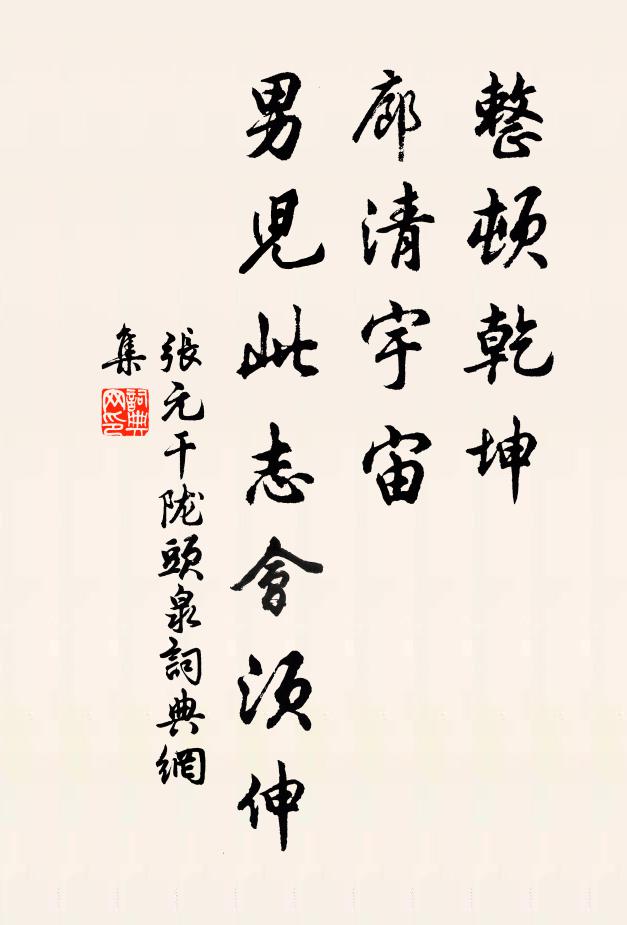 整頓乾坤
廓清宇宙
男児此志會須伸
張元干陇頭泉詞典網
集
詞典
网印